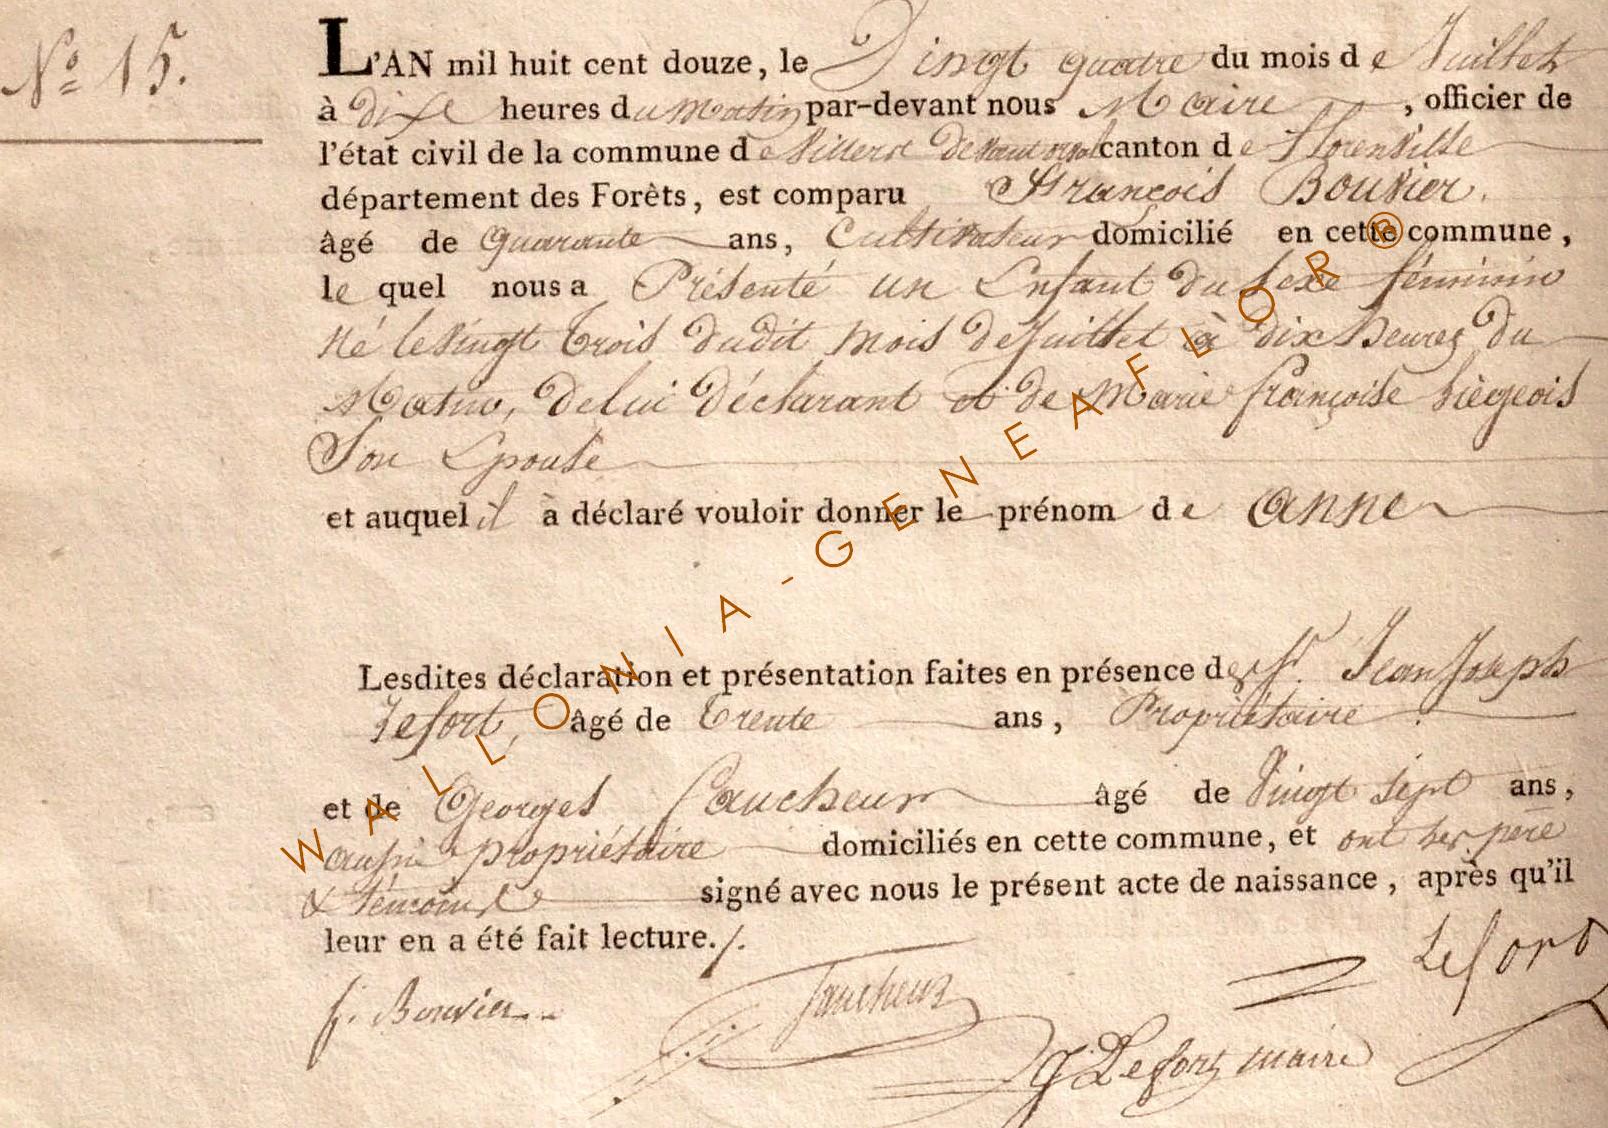 Nº 15.
L'AN mil huit cent douze, le Vingt quatre du mois de Juillet
à dixe heures du matin par-devant nous Maire, officier de
l'état civil de la commune de Villers devant orval canton de Florenville
département des Forêts, est comparu François Bouvier.
âgé de Quarante ans, Cultivateur domicilié en cette commune,
le quel nous a Présenté un Enfant du sexe féminin
Né le vingt trois dudit mois de Juillet à dix heures du
Matin, de lui déclarant et de Marie françoise Liégeois
Son Epouse
et auquel il à déclaré vouloir donner le prénom de anne
Lesdites déclaration et présentation faites en présence de Sr. Jean Joseph
Lefort, âgé de trente ans, Propriétaire.
et de Georges Faucheur âgé de Vingt sept ans,
aussi propriétaire domiciliés en cette commune, et ont les pere
& témoins signé avec nous le présent acte de naissance, après qu'il
leur en a été fait lecture./.
f. Bouvier
Faucheur
Lefort
J Lefort maire
WALLONIA-GENEAFLOR®